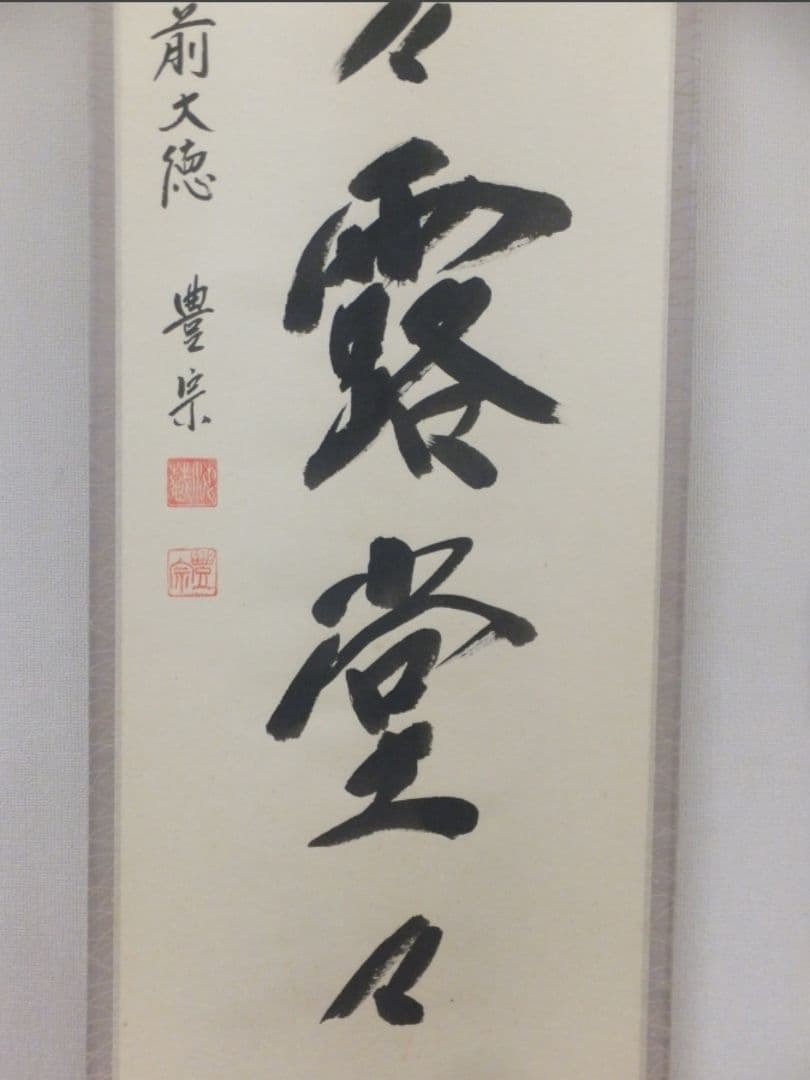 々露堂々
前大徳 豊宗
豊宗